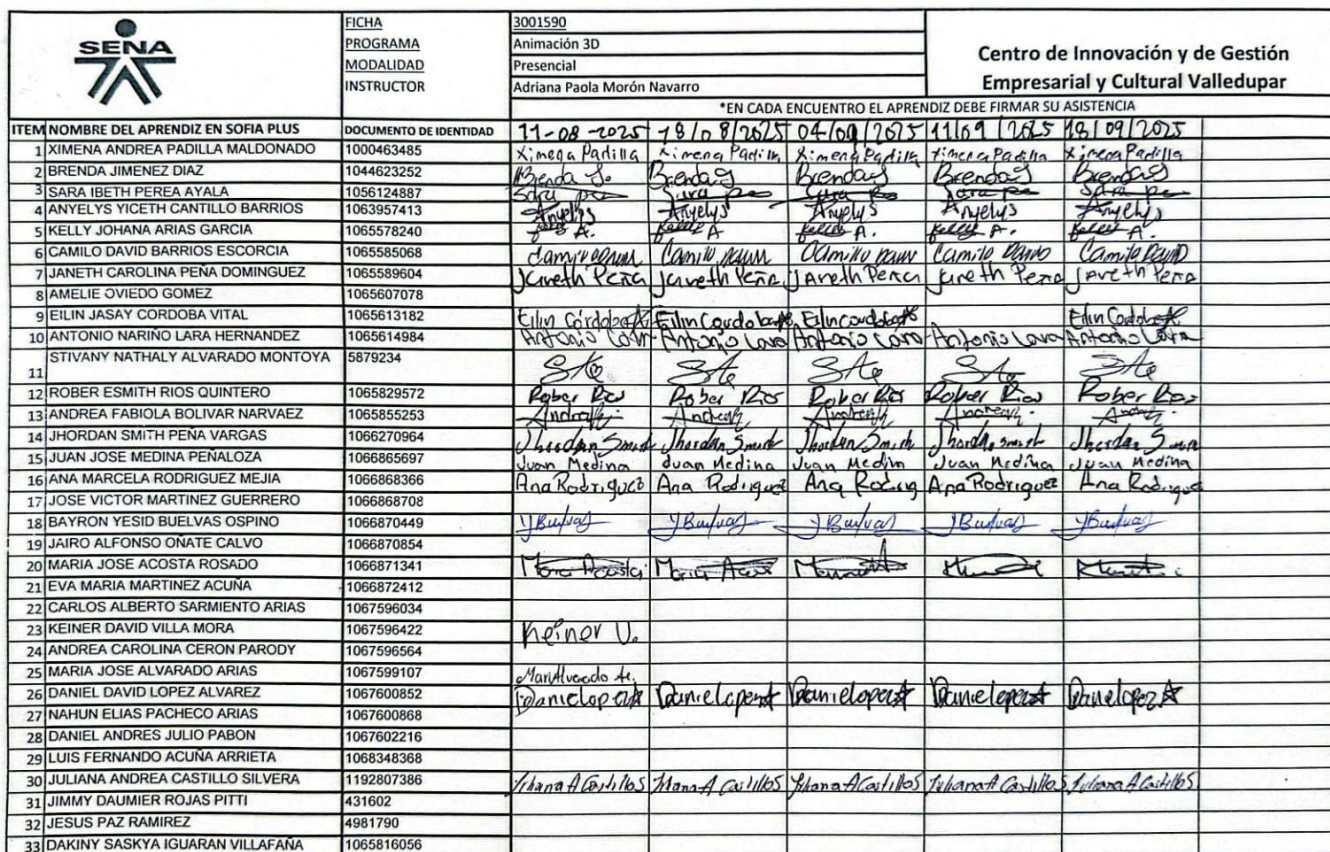 SENA
FICHA 3001590
PROGRAMA Animación 3D
MODALIDAD Presencial
INSTRUCTOR Adriana Paola Morón Navarro
Centro de Innovación y de Gestión
Empresarial y Cultural Valledupar
*EN CADA ENCUENTRO EL APRENDIZ DEBE FIRMAR SU ASISTENCIA
ITEM NOMBRE DEL APRENDIZ EN SOFIA PLUS DOCUMENTO DE IDENTIDAD 11-08-2025 18/08/2025 04/09/2025 11/09/2025 18/09/2025
1 XIMENA ANDREA PADILLA MALDONADO 1000463485 Ximena Padilla Ximena Padilla Ximena Padilla Ximena Padilla Ximena Padilla
2 BRENDA JIMENEZ DIAZ 1044623252 Brenda J. Brenda J Brenda J Brenda J Brenda J
3 SARA IBETH PEREA AYALA 1056124887 Sara pe Sara pe Sara pe Sara pe Sara pe
4 ANYELYS YICETH CANTILLO BARRIOS 1063957413 Anyelys Anyelys Anyelys Anyelys Anyelys
5 KELLY JOHANA ARIAS GARCIA 1065578240 Kelly A. Kelly A Kelly A. Kelly A. Kelly A.
6 CAMILO DAVID BARRIOS ESCORCIA 1065585068 Camilo David Camilo David Camilo David Camilo David Camilo David
7 JANETH CAROLINA PEÑA DOMINGUEZ 1065589604 Janeth Peña Janeth Peña Janeth Peña Janeth Peña Janeth Peña
8 AMELIE OVIEDO GOMEZ 1065607078
9 EILIN JASAY CORDOBA VITAL 1065613182 Eilin Córdoba Eilin Cordoba Eilin Cordoba Eilin Cordoba
10 ANTONIO NARIÑO LARA HERNANDEZ 1065614984 Antonio Lara Antonio Lara Antonio Lara Antonio Lara Antonio Lara
11 STIVANY NATHALY ALVARADO MONTOYA 5879234 Ste Ste Ste Ste Ste
12 ROBER ESMITH RIOS QUINTERO 1065829572 Rober Rios Rober Rios Rober Rios Rober Rios Rober Rios
13 ANDREA FABIOLA BOLIVAR NARVAEZ 1065855253
14 JHORDAN SMITH PEÑA VARGAS 1066270964 Jhordan Smith Jhordan Smith Jhordan Smith Jhordan Smith Jhordan Smith
15 JUAN JOSE MEDINA PEÑALOZA 1066865697 Juan Medina Juan Medina Juan Medina Juan Medina Juan Medina
16 ANA MARCELA RODRIGUEZ MEJIA 1066868366 Ana Rodriguez Ana Rodriguez Ana Rodrig Ana Rodriguez Ana Rodriguez
17 JOSE VICTOR MARTINEZ GUERRERO 1066868708
18 BAYRON YESID BUELVAS OSPINO 1066870449 YBuelvas YBuelvas YBuelvas YBuelvas YBuelvas
19 JAIRO ALFONSO OÑATE CALVO 1066870854
20 MARIA JOSE ACOSTA ROSADO 1066871341 Maria Acosta Maria Acosta
21 EVA MARIA MARTINEZ ACUÑA 1066872412
22 CARLOS ALBERTO SARMIENTO ARIAS 1067596034
23 KEINER DAVID VILLA MORA 1067596422 Keiner V.
24 ANDREA CAROLINA CERON PARODY 1067596564
25 MARIA JOSE ALVARADO ARIAS 1067599107 MariAlvarado A.
26 DANIEL DAVID LOPEZ ALVAREZ 1067600852 Danielopez Danielopez Danielopez Danielopez Danielopez
27 NAHUN ELIAS PACHECO ARIAS 1067600868
28 DANIEL ANDRES JULIO PABON 1067602216
29 LUIS FERNANDO ACUÑA ARRIETA 1068348368
30 JULIANA ANDREA CASTILLO SILVERA 1192807386 Juliana A Castillo S Juliana A Castillo S Juliana A Castillo S Juliana A Castillo S Juliana A Castillo S
31 JIMMY DAUMIER ROJAS PITTI 431602
32 JESUS PAZ RAMIREZ 4981790
33 DAKINY SASKYA IGUARAN VILLAFAÑA 1065816056